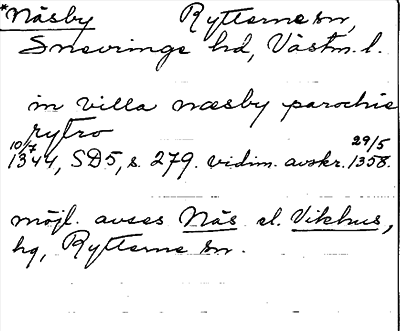 *Näsby Rytterne sn,
Snevringe hd, Västm. l.
in villa næsby parochie
rytro
10/7 1344, SD5, s. 279. vidim. avskr. 29/5 1358.
möjl. avses Näs el. Vikhus,
hg, Rytterne sn.